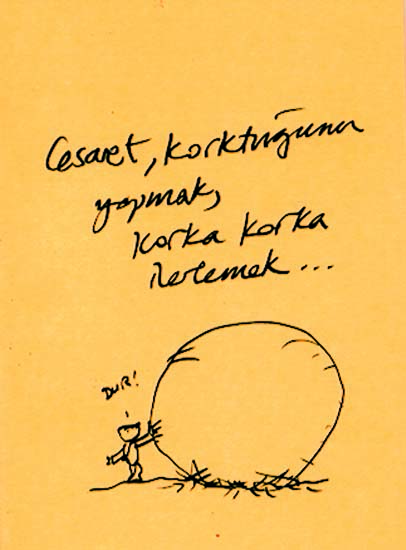 Cesaret, korktuğunu
yapmak,
korka korka
ilerlemek...
DUR!